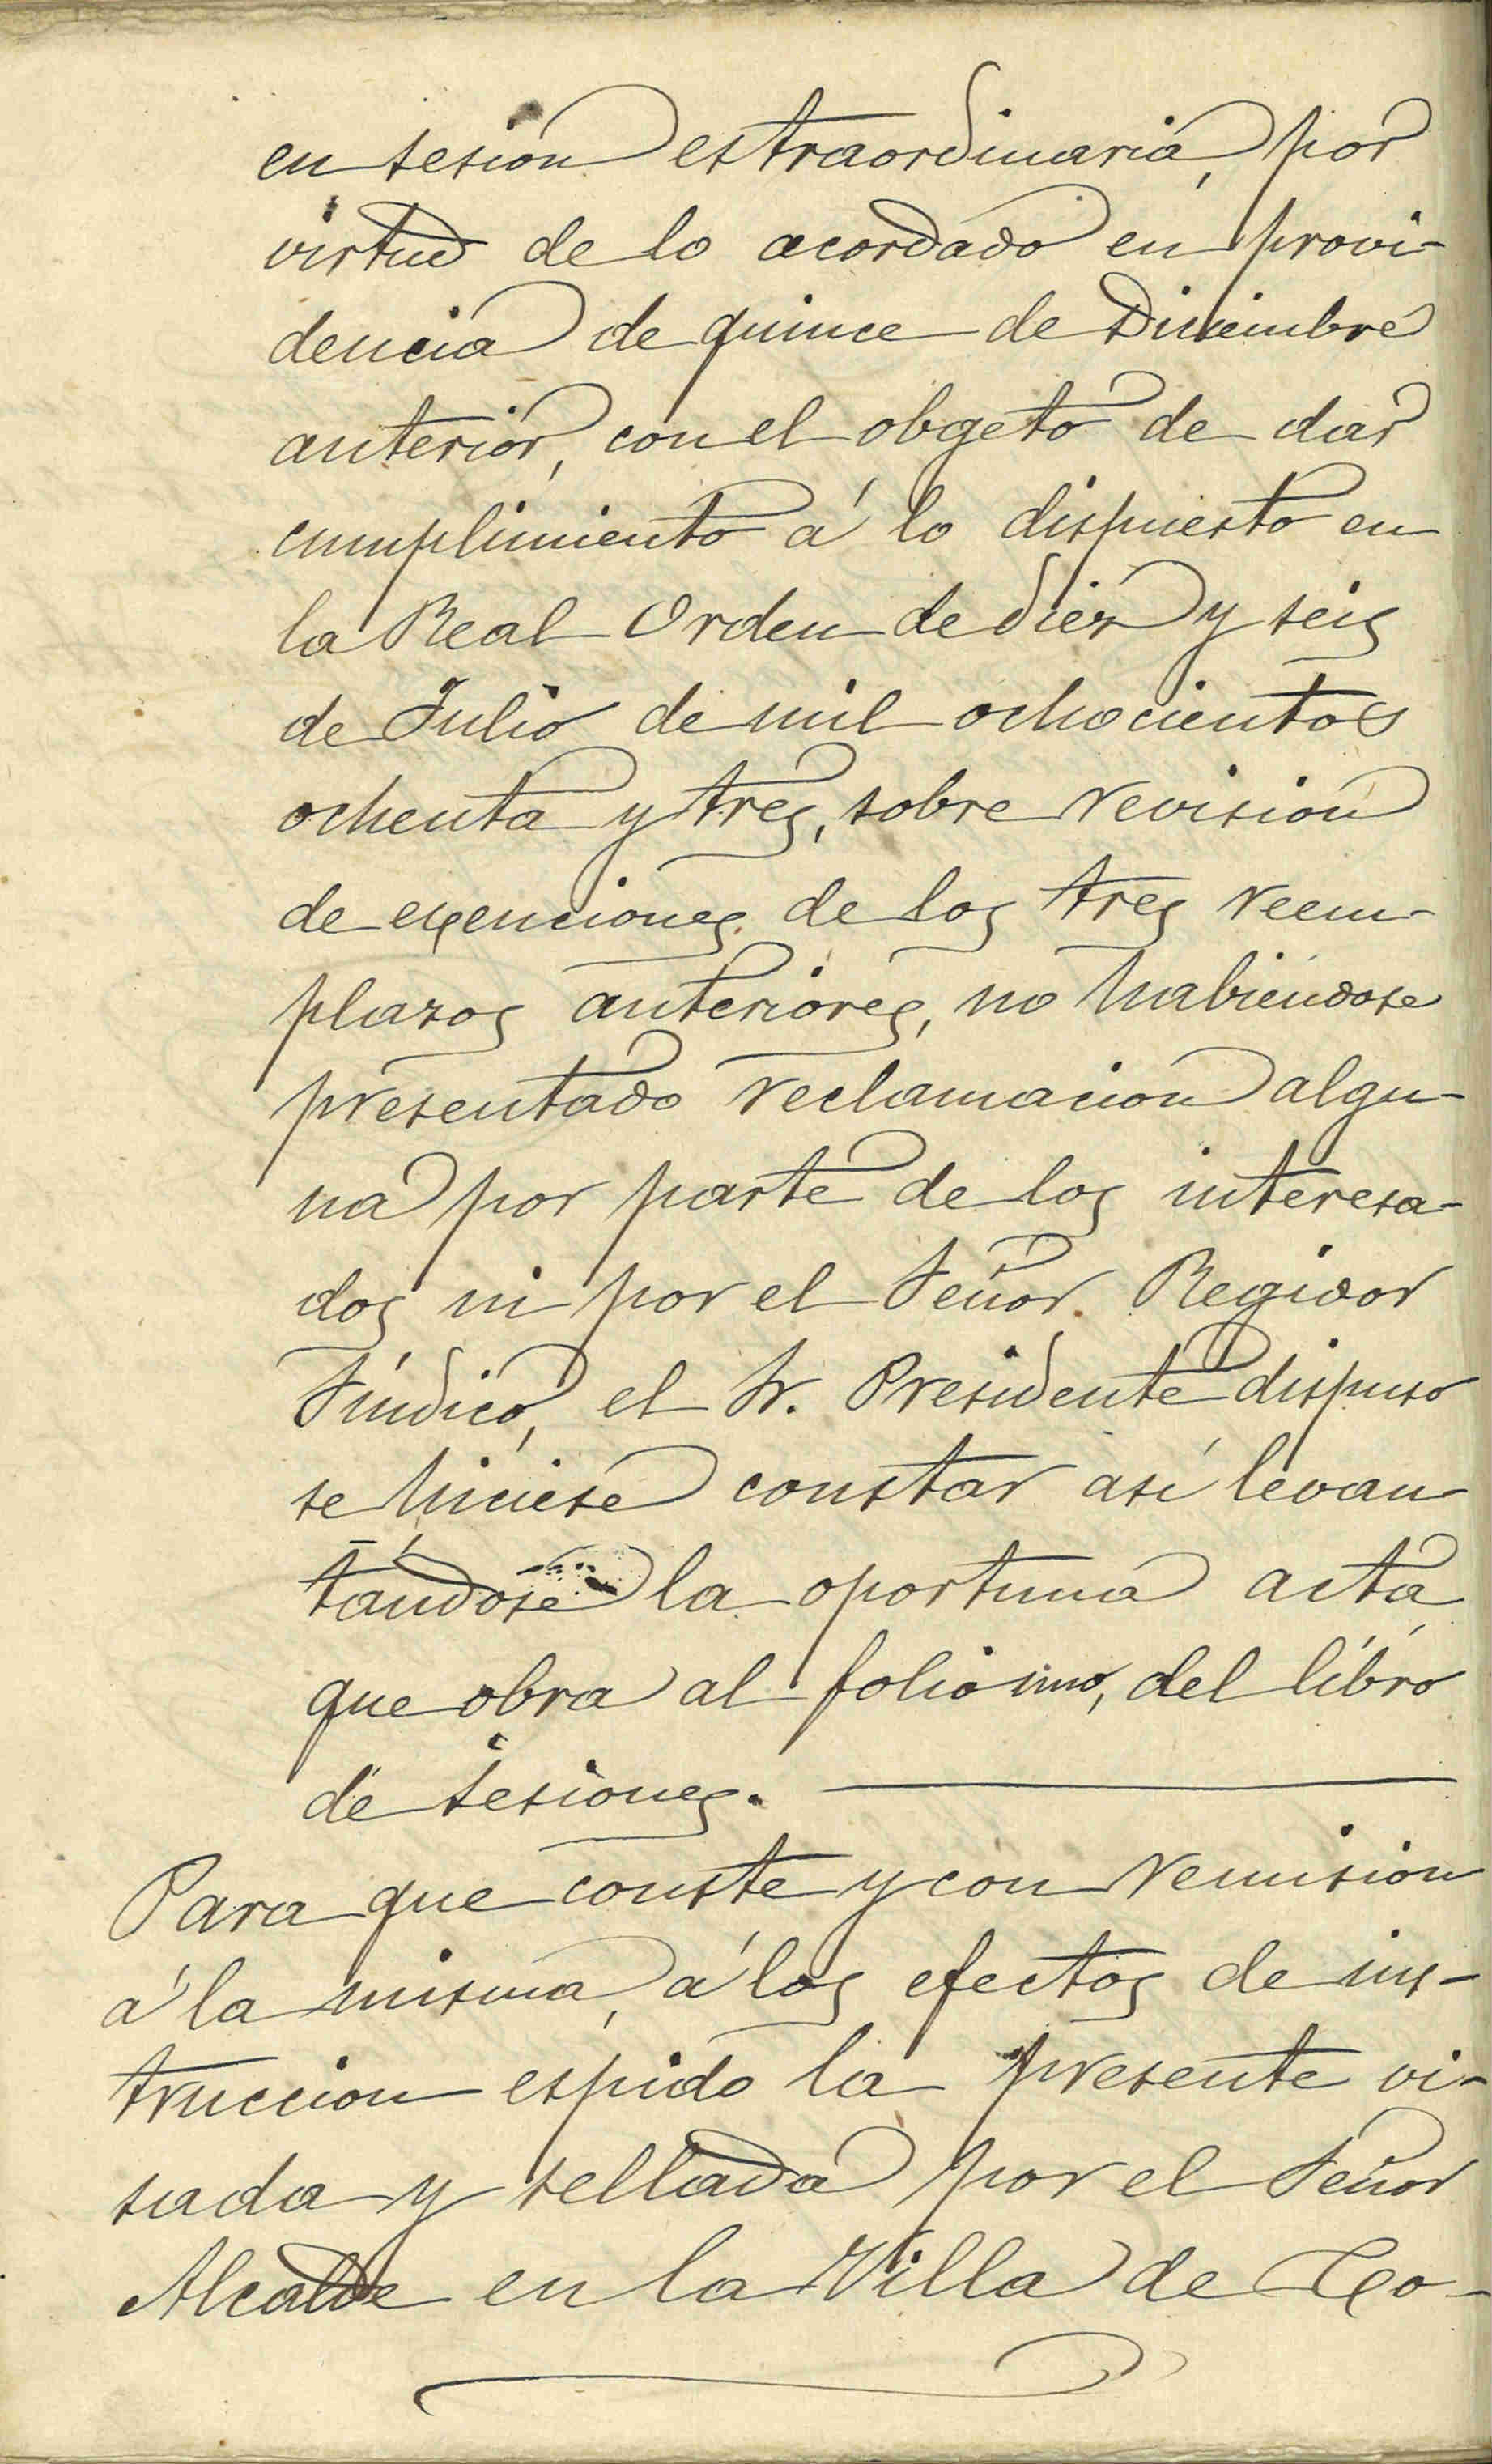 en sesion estraordinaria, por
virtud de lo acordado en provi-
dencia de quince de Diciembre
anterior, con el obgeto de dar
cumplimiento á lo dispuesto en
la Real Orden de diez y seis
de Julio de mil ochocientos
ochenta y tres, sobre revision
de exenciones de los tres reem-
plazos anteriores, no habiéndose
presentado reclamacion algu-
na por parte de los interesa-
dos ni por el Señor Regidor
Síndico, el Sr. Presidente dispuso
se hiciese constar así levan-
tándose la oportuna acta
que obra al folio uno, del libro
de sesiones.
Para que conste y con remision
á la misma, á los efectos de ins-
truccion espido la presente vi-
sada y sellada por el Señor
Alcalde en la Villa de